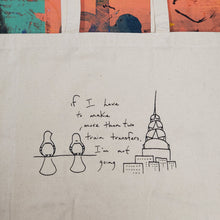 if I have
to make
more than two
train transfers,
I'm not
going